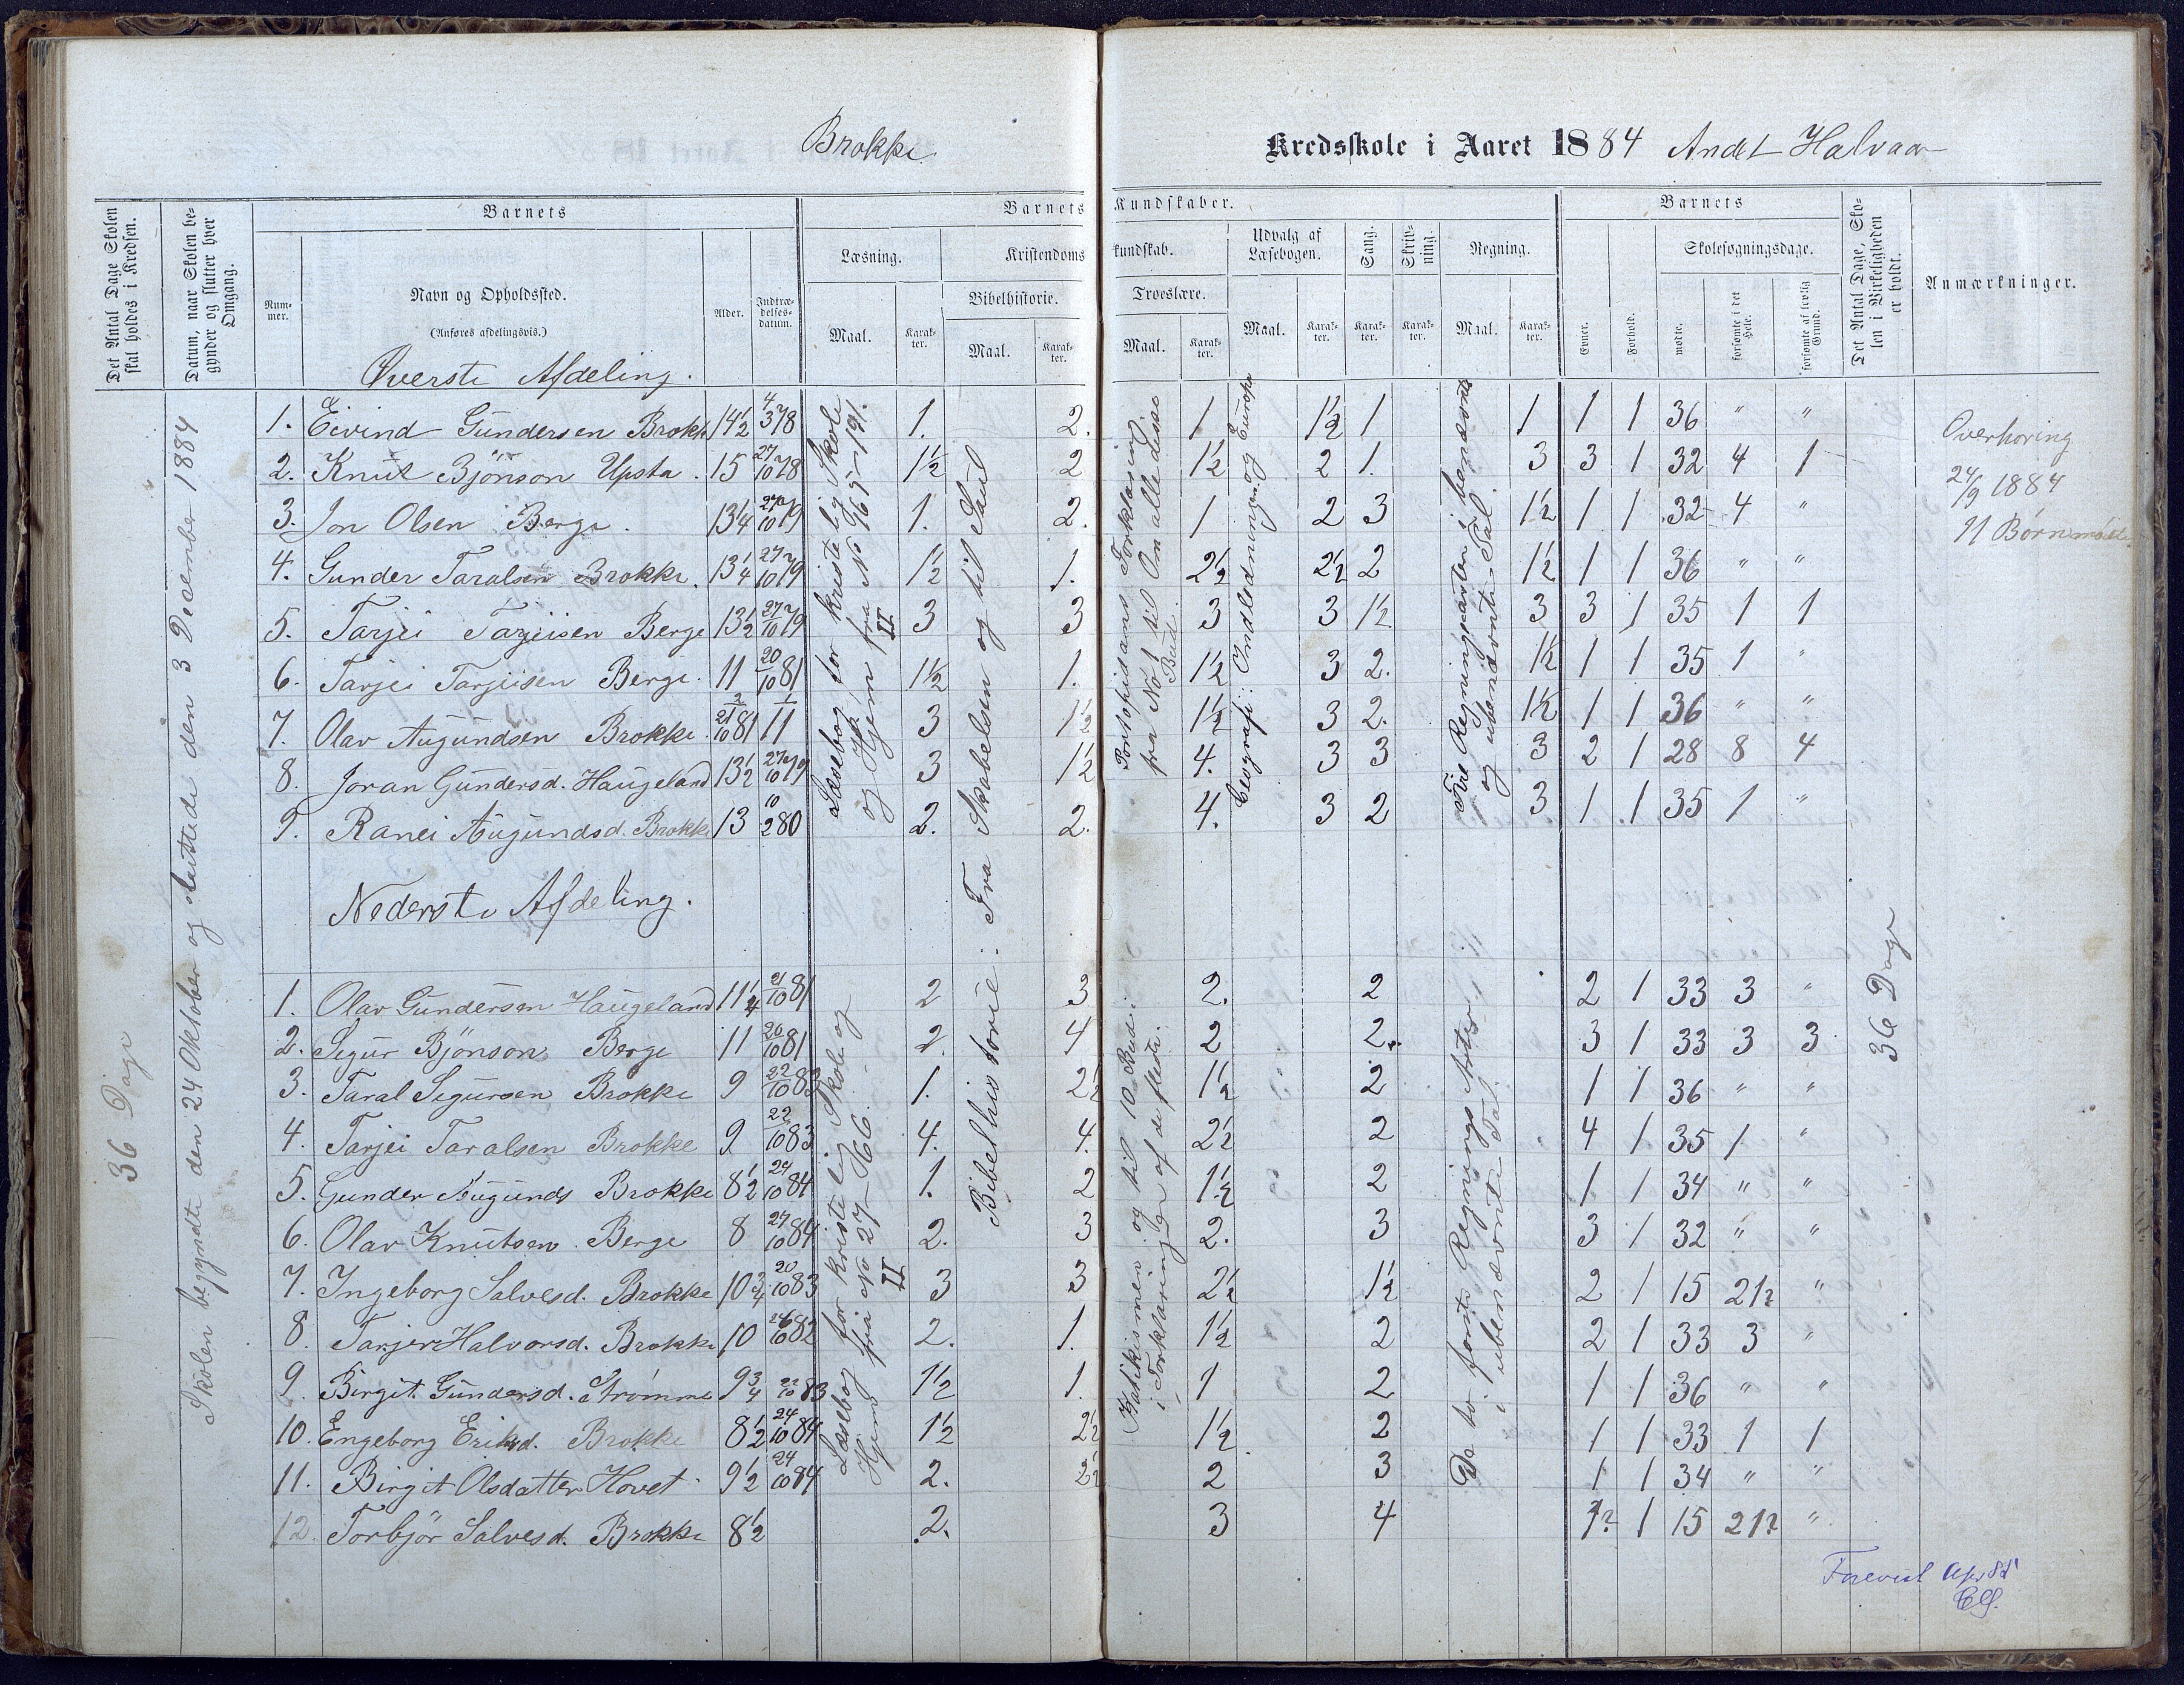 Brokke
Kredsskole i Aaret 1884 Andet Halvaar
Det Antal Dage Skolen skal holdes i Kredsen.
Datum, naar Skolen begynder og slutter hver Omgang.
Barnets
Nummer.
Navn og Opholdssted.
(Anføres afdelingsvis.)
Alder.
Indtrædelsesdatum.
Barnets Kundskaber.
Læsning.
Maal.
Karakter.
Kristendomskundskab.
Bibelhistorie.
Maal.
Karakter.
Troeslære.
Maal.
Karakter.
Udvalg af Læsebogen.
Maal.
Karakter.
Sang.
Karakter.
Skrivning.
Karakter.
Regning.
Maal.
Karakter.
Barnets
Evner.
Forhold.
Skolesøgningsdage.
mødte.
forsømte i det Hele.
forsømte af lovlig Grund.
Det Antal Dage, Skolen i Virkeligheden er holdt.
Anmærkninger.
36 Dage
Skolen begyndte den 24 Oktober og sluttede den 3 December 1884
Øverste Afdeling.
1. Eivind Gundersen Brokke 14½ 4/3 78 1. 2. 1 1½ 1 1 1 1 36 " "
2. Knut Bjönson Upsta. 15 27/10 78 1½ 2 1½ 2 1. 3 3 1 32 4 1
3. Jon Olsen Berge. 13¼ 27/10 79 1. 2. 1 2 3 1½ 1 1 32 4 "
4. Gunder Taralsen Brokke. 13¼ 27/10 79 1½ 1. 2½ 2½ 2 1½ 1 1 36 " "
5. Tarjei Tarjeisen Berge 13½ 27/10 79 3 3 3 3 1½ 3 3 1 35 1 1
6. Tarjei Tarjeisen Berge. 11 20/10 81 1½ 1. 1½ 3 2. 1½ 1 1 35 1 "
7. Olav Augundsen Brokke. 21/10 81 11 3 1½ 1½ 3 2. 1½ 1 1 36 " "
8. Joran Gundersd. Haugeland 13½ 27/10 79 3 1½ 4. 3 3 3 2 1 28 8 4
9. Ranei Augundsd. Brokke 13 10/2 80 2. 2. 4. 3 2 3 1 1 35 1 "
Læsebog for kristelig Skole og Hjem fra No 165-191. II
Bibelhistorie: Fra Skabelsen og til Saul
Pontopidans Forklaring fra No 1 til Om alle disse Bud.
Geografi: Indledningen og Europa
Fire Regningsarter i benævnte og ubenævnte Tal.
Overhøring
24/9 1884
11 Børn mødte.
Nederste Afdeling.
1. Olav Gundersen Haugeland 11¼ 21/10 81 2 3 2. 2 2 1 33 3 "
2. Segur Bjönson Berge 11 20/10 81 2. 4 2 2. 3 1 33 3 3
3. Taral Segursen Brokke 9 22/10 83 1. 2½ 1½ 2 1 1 36 " "
4. Tarjei Taralsen Brokke 9 22/10 83 4. 4. 2½ 2 4 1 35 1 "
5. Gunder Augunds Brokke 8½ 24/10 84 1. 2 1½ 2 1 1 34 " "
6. Olav Knutsen Berge 8 27/10 84 2. 3 2. 3 3 1 32 " "
7. Ingeborg Salvesd. Brokke 10¾ 20/10 83 3 3 2½ 1½ 2 1 15 21? "
8. Tarjer Halvorsd. Brokke 10 26/10 82 2. 1. 1½ 2 2 1 33 3 "
9. Birgit Gundersd. Strømme 9¾ 22/10 83 1½ 1. 1 2 1 1 36 " "
10. Engeborg Eriksd. Brokke 8½ 24/10 84 1½ 2½ 1½ 2 1 1 33 1 1
11. Birgit Olsdatter Hovet 9½ 24/10 84 2. 2½ 2 3 1 1 34 " "
12. Torbjör Salvesd. Brokke 8½ 2. 3 4 1? 1 15 21? "
Læsebog for kristelig Skole og Hjem fra No 27-66. II
Katekismen og til 10 Bud i Forklaringen af de fleste.
De to første Regnings Arter i ubenævnte Tal
36 Dage
Forevist Apr 85